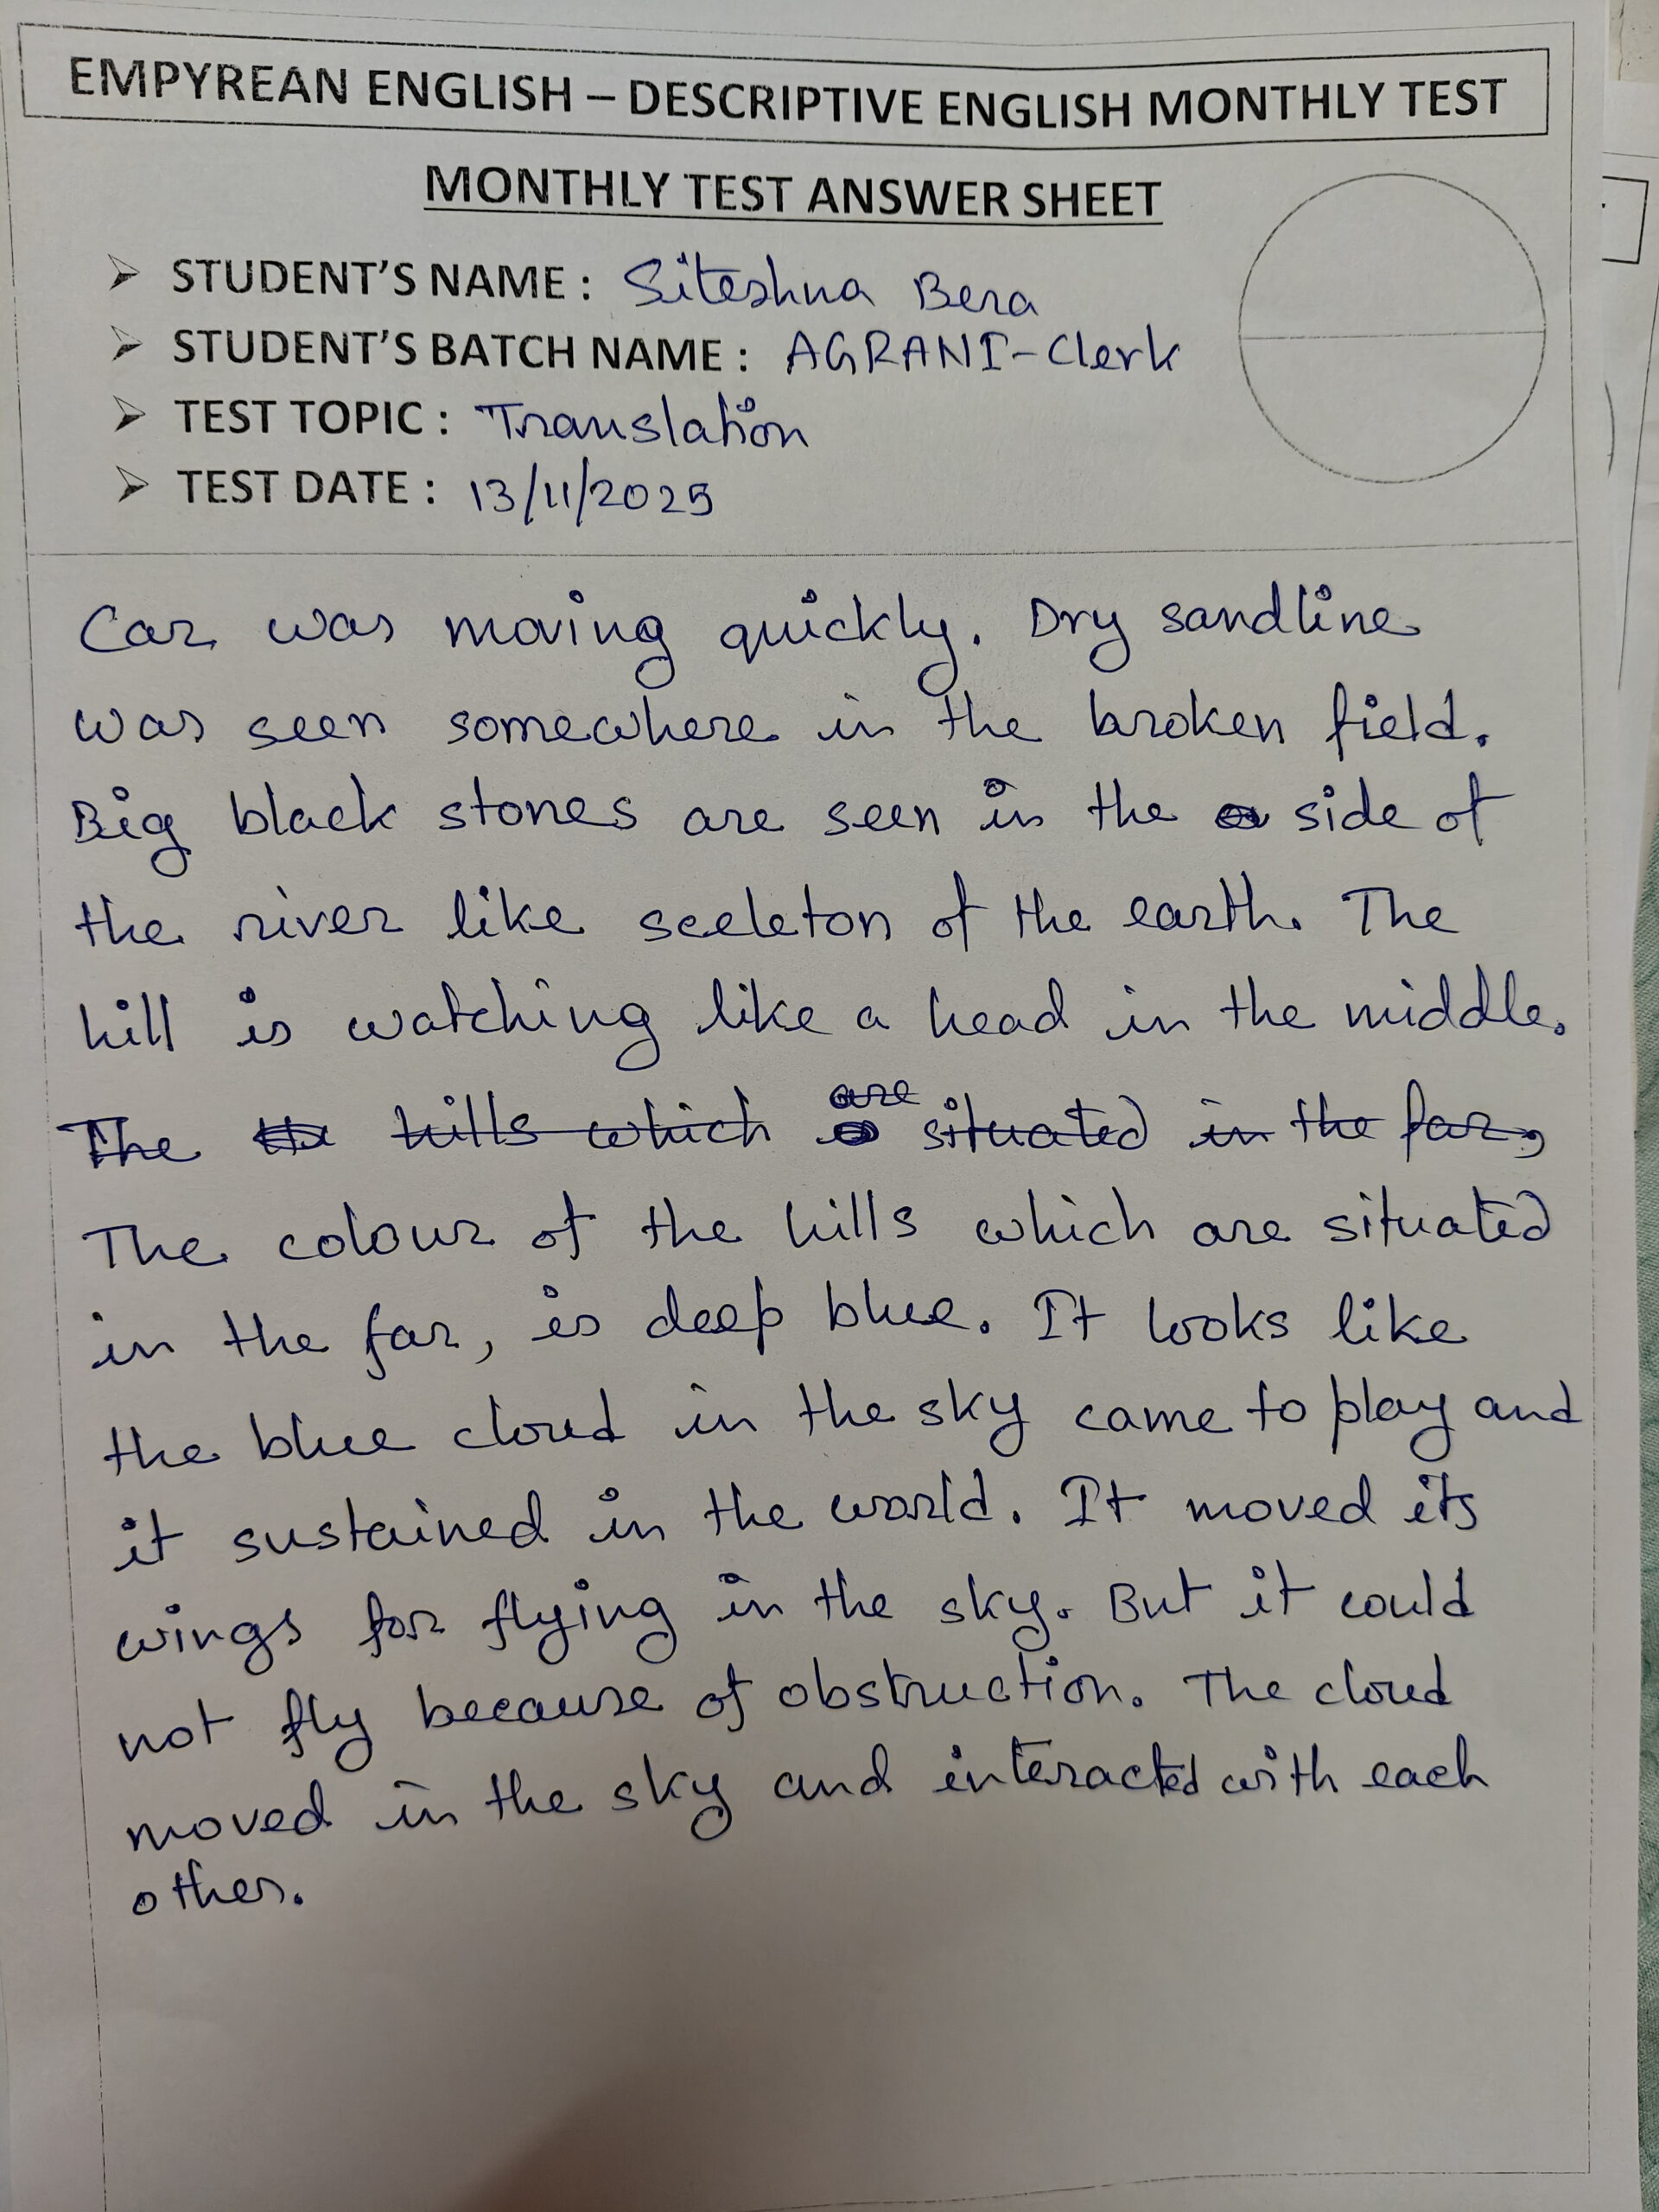 EMPYREAN ENGLISH – DESCRIPTIVE ENGLISH MONTHLY TEST
MONTHLY TEST ANSWER SHEET
➢ STUDENT'S NAME : Siteshna Bera
➢ STUDENT'S BATCH NAME : AGRANI-Clerk
➢ TEST TOPIC : Translation
➢ TEST DATE : 13/11/2025
Car was moving quickly. Dry sandline
was seen somewhere in the broken field.
Big black stones are seen in the side of
the river like sceleton of the earth. The
hill is watching like a head in the middle.
The hills which are situated in the far,
The colour of the hills which are situated
in the far, is deep blue. It looks like
the blue cloud in the sky came to play and
it sustained in the world. It moved its
wings for flying in the sky. But it could
not fly because of obstruction. The cloud
moved in the sky and interacted with each
other.